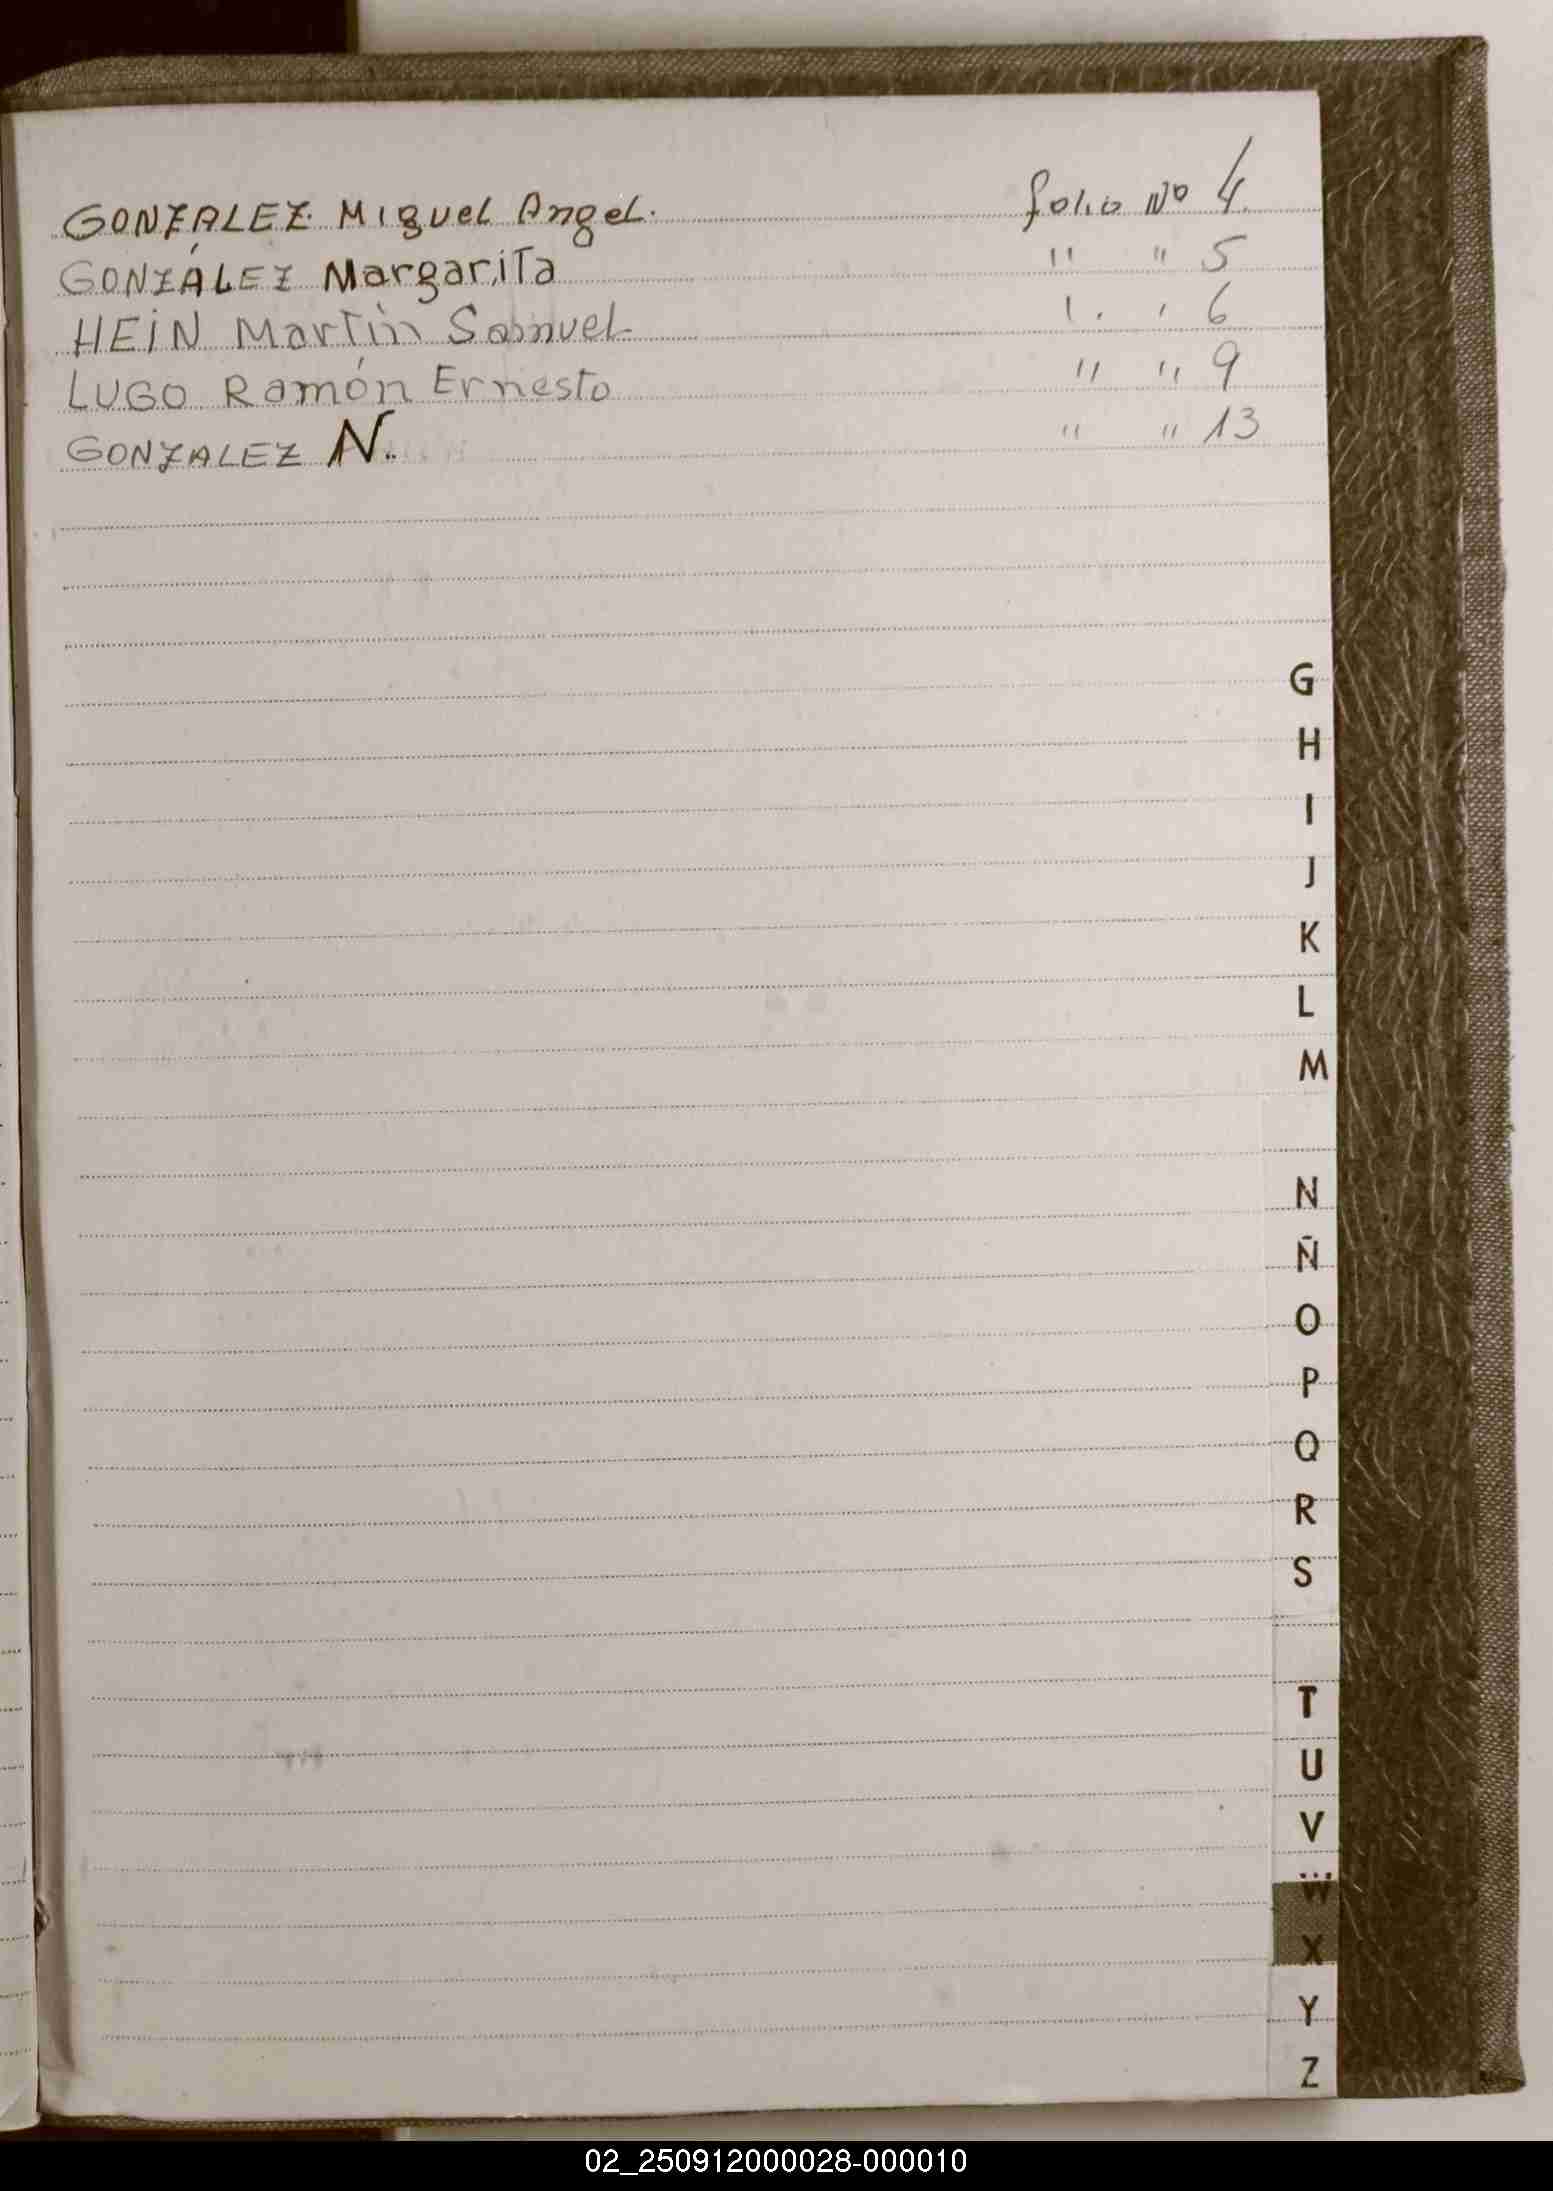 GONZALEZ. Miguel Angel. folio Nº 4.
GONZÁLEZ Margarita " " 5
HEIN Martín Samuel 6
LUGO Ramón Ernesto " " 9
GONZALEZ N. " " 13
G
H
I
J
K
L
M
N
Ñ
O
P
Q
R
S
T
U
V
W
X
Y
Z
02_250912000028-000010